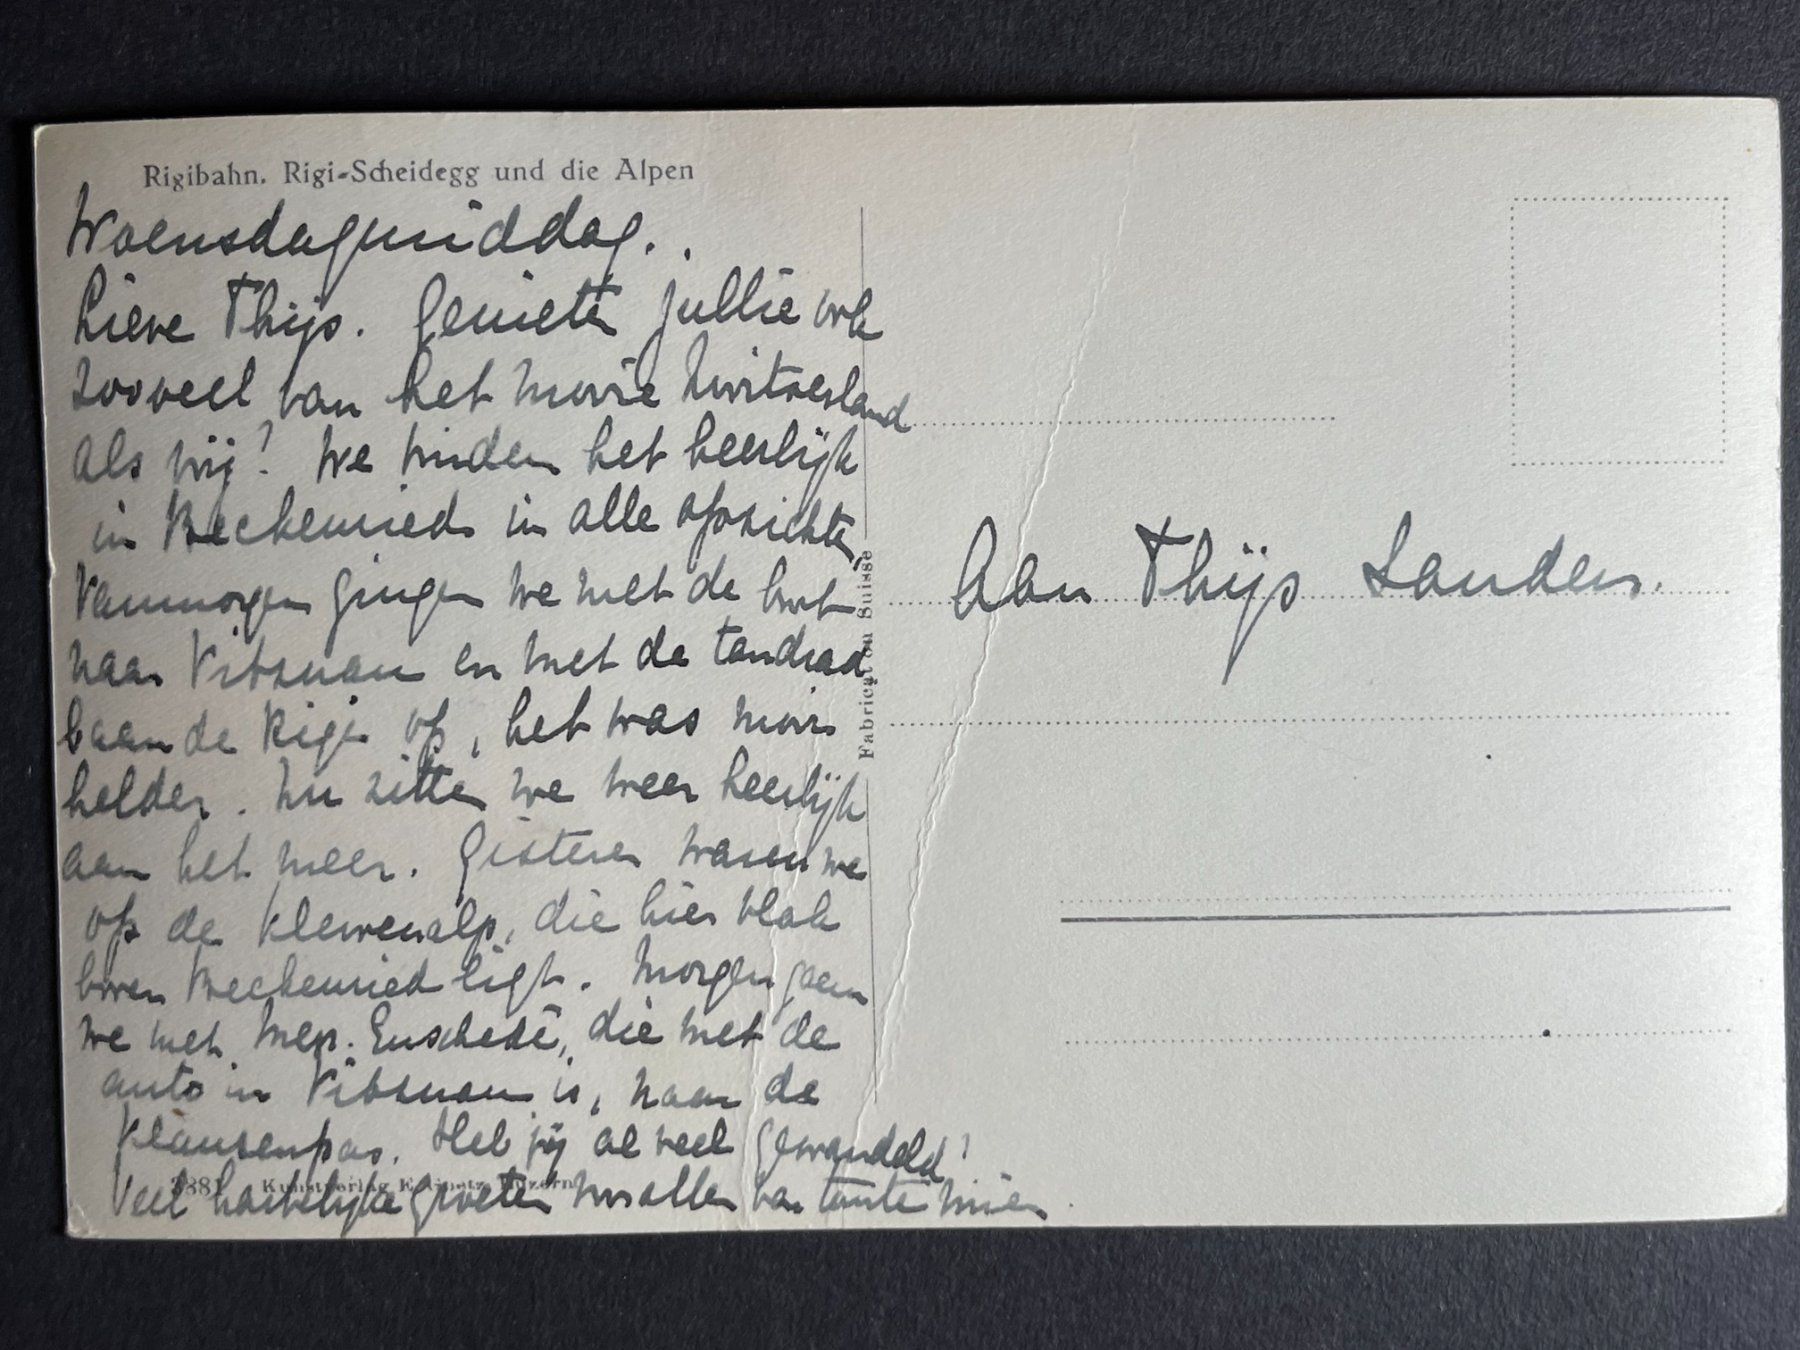 Rigibahn. Rigi-Scheidegg und die Alpen
Woensdagmiddag.
Lieve Thijs. Genieten jullie ook
zooveel van het mooie Zwitserland
als wij? We vinden het heerlijk
in Beckenried in alle opzichten
Vanmorgen gingen we met de boot
naar Vitznau en met de tandrad
baan de Rigi op, het was mooi
helder. Nu zitten we weer heerlijk
aan het meer. Gisteren waren we
op de Klewenalp, die hier vlak
boven Beckenried ligt. Morgen gaan
we met Mevr. Enschedé, die met de
auto in Vitznau is, naar de
Klausenpas. Heb jij al veel gewandeld?
Veel hartelijke groeten voor allen van tante Mien
3881 Kunstverlag Luzern
Fabrication Suisse
Aan Thijs Landers.